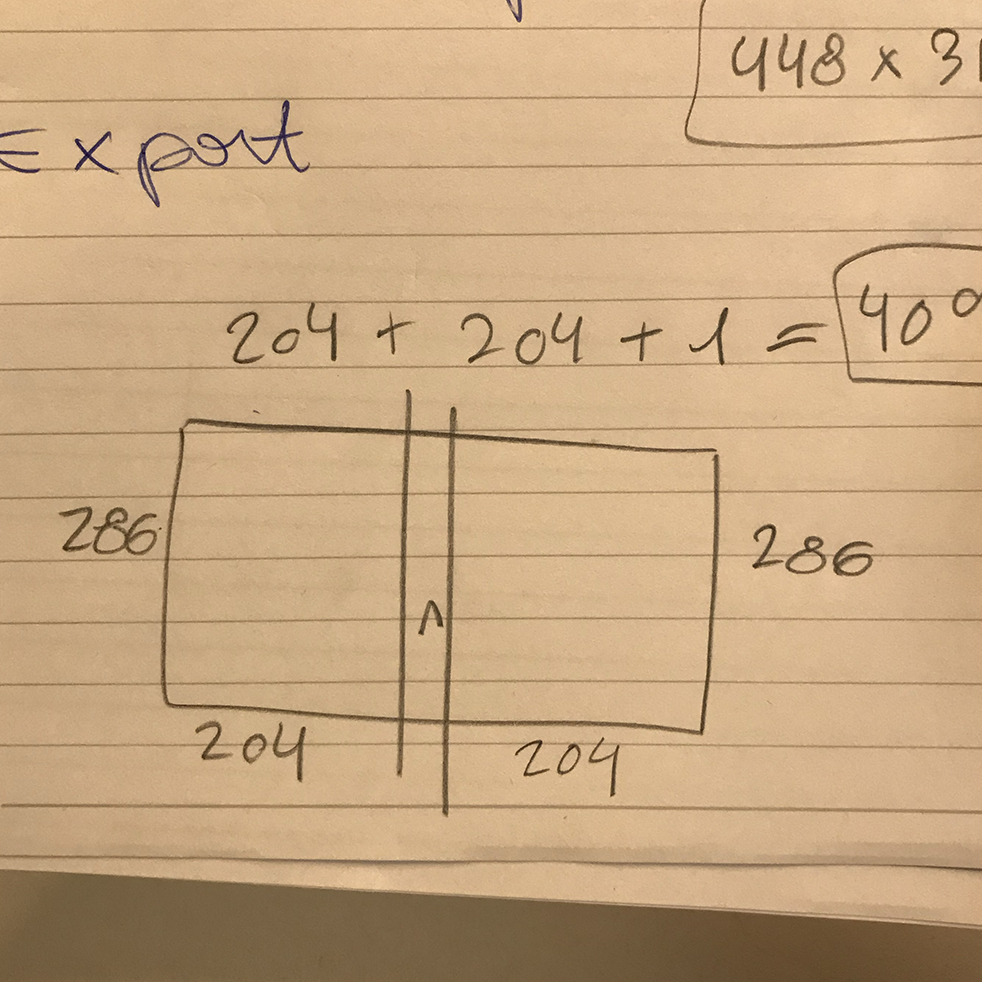 448 x 31
Export
204 + 204 + 1 = 409
286
1
286
204
204